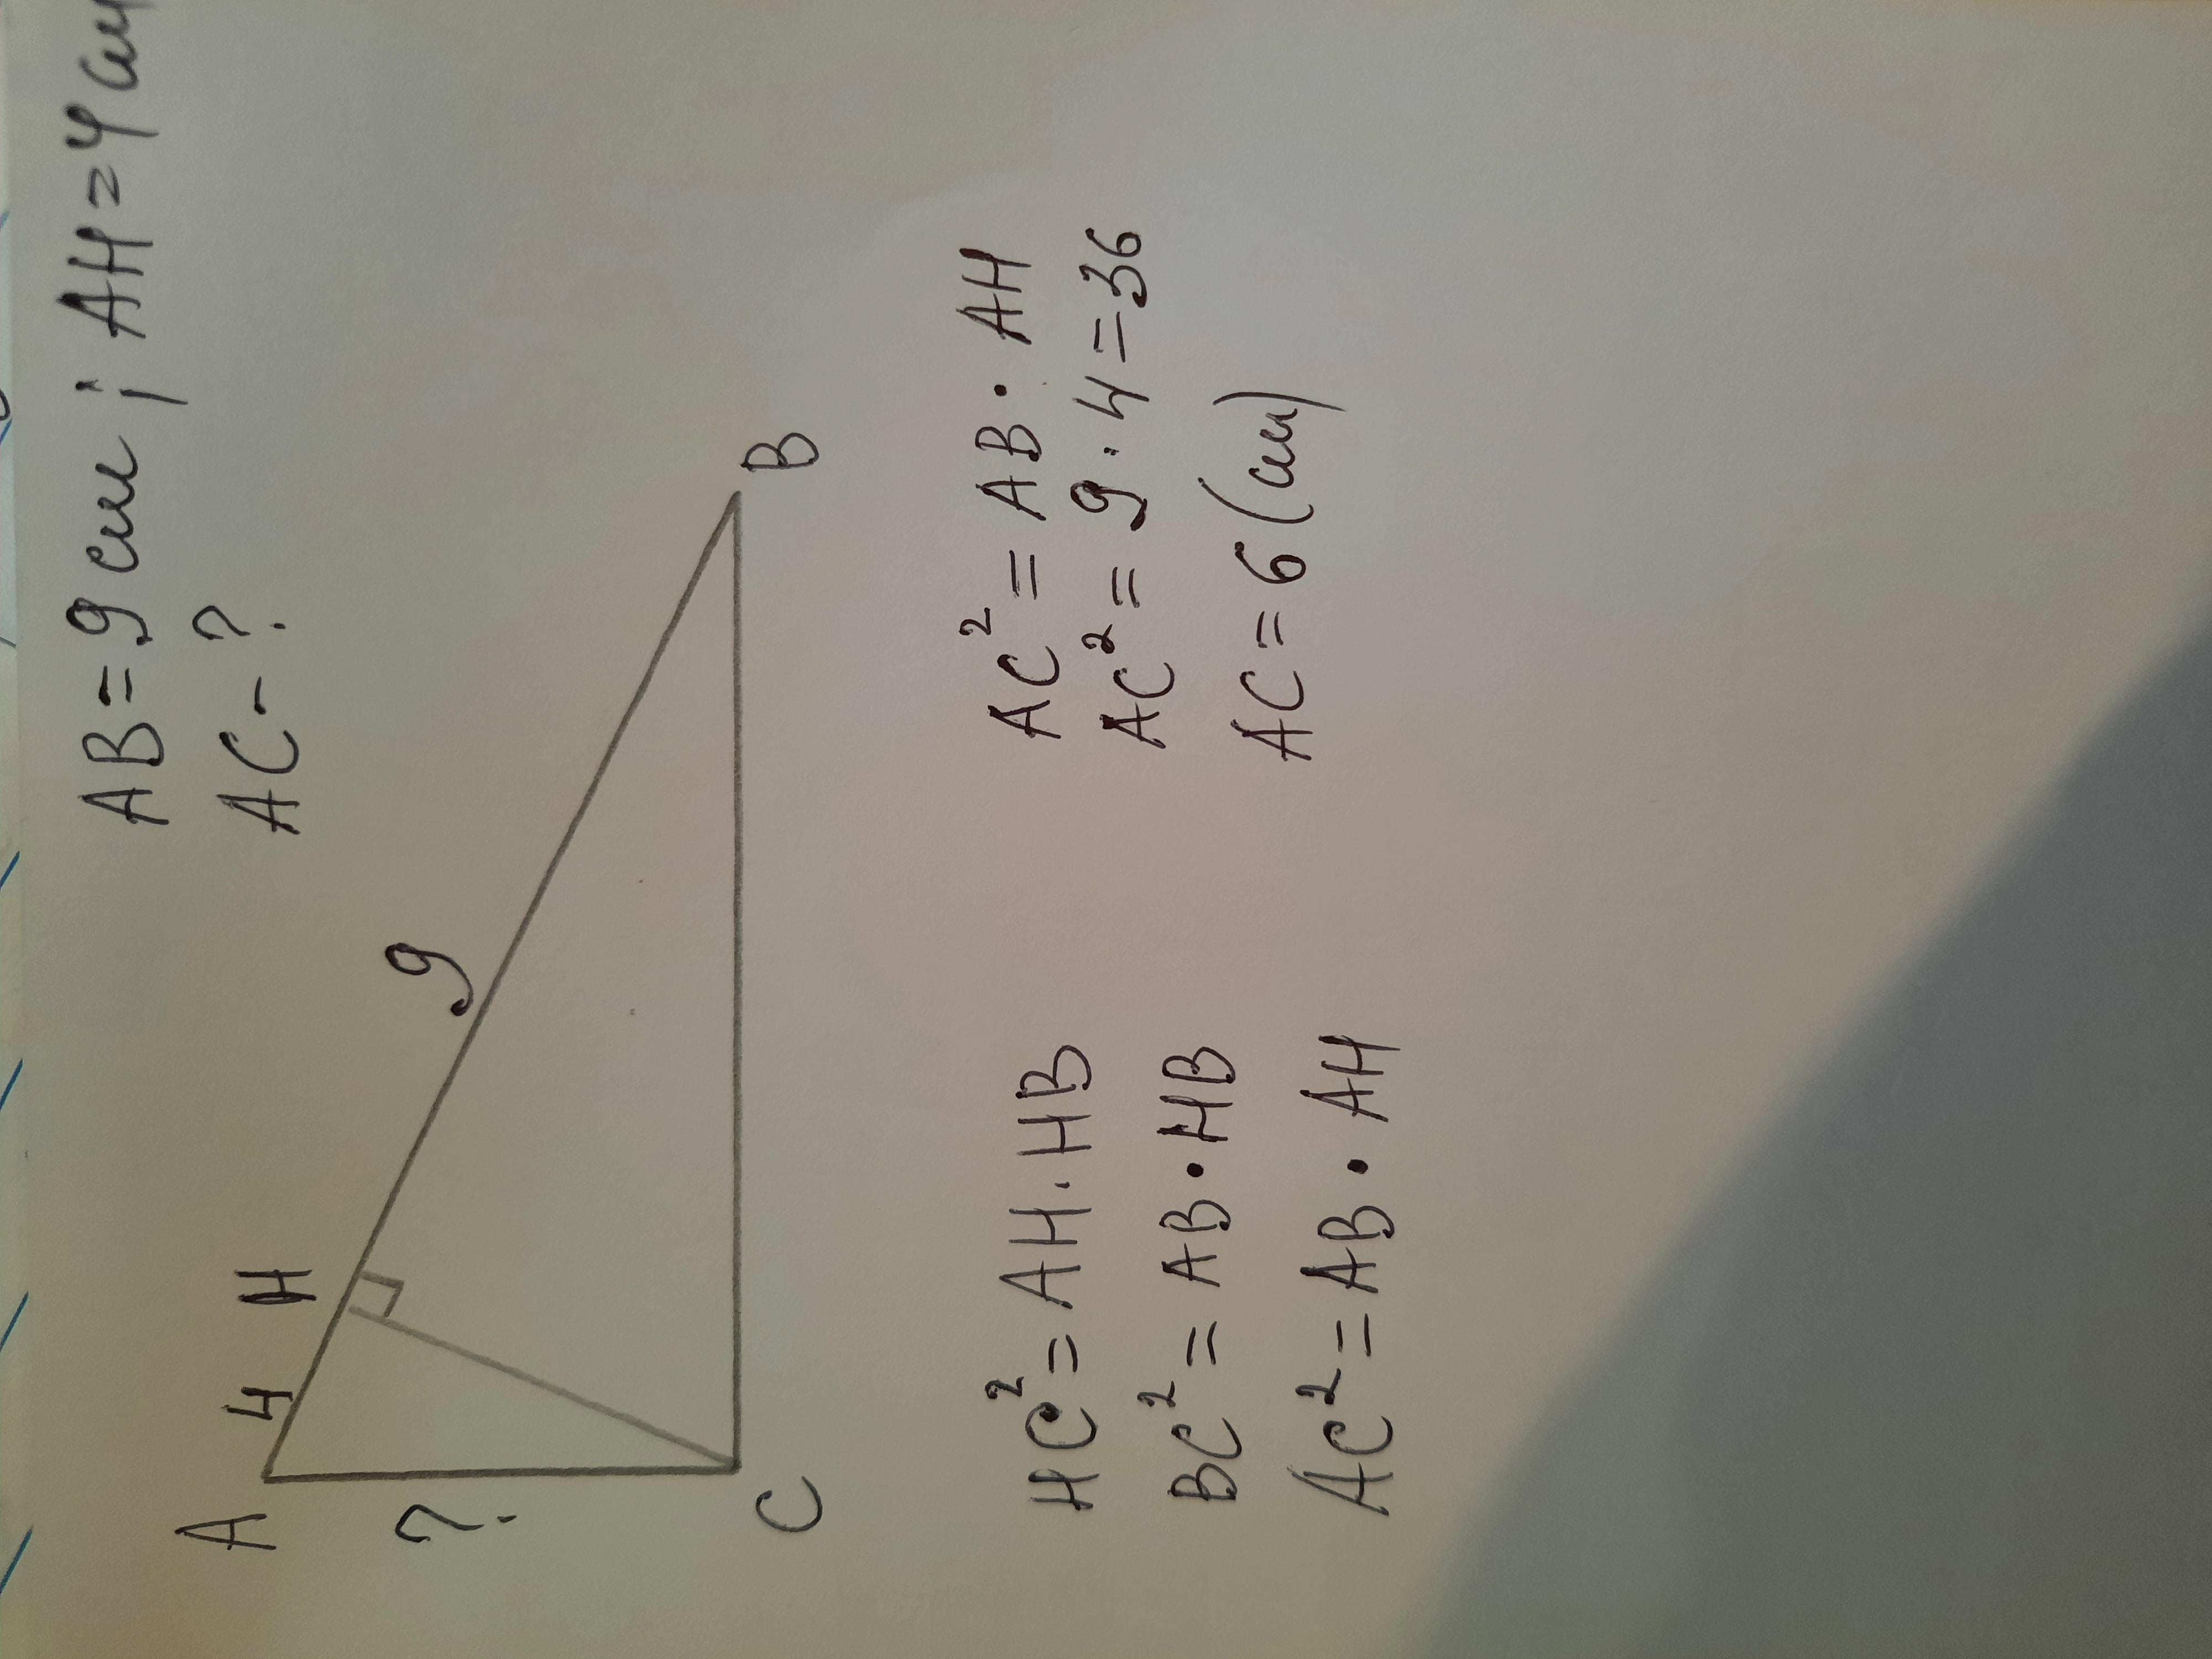 AB = 9 см ; AH = 4 см
AC - ?
A
4
H
9
?
C
B
HC² = AH · HB
BC² = AB · HB
AC² = AB · AH
AC² = AB · AH
AC² = 9 · 4 = 36
AC = 6 (см)